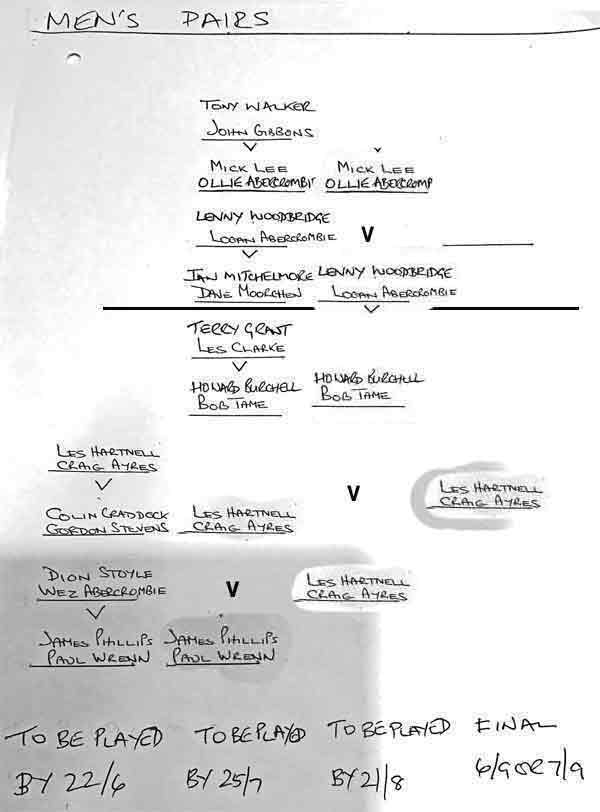 MEN'S PAIRS
TONY WALKER
JOHN GIBBONS
V
MICK LEE MICK LEE
OLLIE ABERCROMBI OLLIE ABERCROMP
LENNY WOODBRIDGE
LOGAN ABERCROMBIE V
V
IAN MITCHELMORE LENNY WOODBRIDGE
DAVE MOORCHEN LOGAN ABERCROMBIE
V
TERRY GRANT
LES CLARKE
V
HOWARD BURCHELL HOWARD BURCHELL
BOB TAME BOB TAME
LES HARTNELL
CRAIG AYRES
V
V
LES HARTNELL
CRAIG AYRES
COLIN CRADDOCK LES HARTNELL
GORDON STEVENS CRAIG AYRES
DION STOYLE V LES HARTNELL
WEZ ABERCROMBIE CRAIG AYRES
V
JAMES PHILLIPS JAMES PHILLIPS
PAUL WRENN PAUL WRENN
TO BE PLAYED TO BE PLAYED TO BE PLAYED FINAL
BY 22/6 BY 25/7 BY 21/8 6/9 OR 7/9